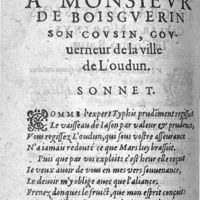 A MONSIEVR
DE BOISGVERIN
SON COVSIN, GOV-
uerneur de la ville
de L'oudun.
SONNET.
COMME l'expert Typhis prudemment regissoit
Le vaisseau de Iason par valeur & prudence,
Vous regissez L'oudun, qui sous vostre asseurance
N'a iamais redouté ce que Mars luy brassoit.
Puis que par vos exploits c'est heur elle reçoit
Ie veux auoir de vous en mes vers souuenance,
Le deuoir m'y oblige auec que l'aliance:
Prenez donques le fruict, que mon esprit conçoit: